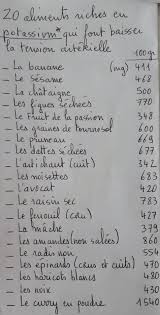 20 aliments riches en
potassium qui font baisser
la tension artérielle
100 gr
_ La banane (mg) 411
_ Le sésame 468
_ La châtaigne 500
_ Les figues séchées 770
_ Le fruit de la passion 348
_ Les graines de tournesol 600
_ Le pruneau 669
_ Les dattes séchées 677
_ L'artichaut (cuit) 342
_ Les noisettes 683
_ L'avocat 420
_ Le raisin sec 783
_ Le fenouil (cru) 427
_ La mâche 379
_ Les amandes (non salées) 860
_ Le radis noir 554
_ Les épinards (crus et cuits) 470
_ Les haricots blancs 480
_ Les noix 430
_ Le curry en poudre 1540